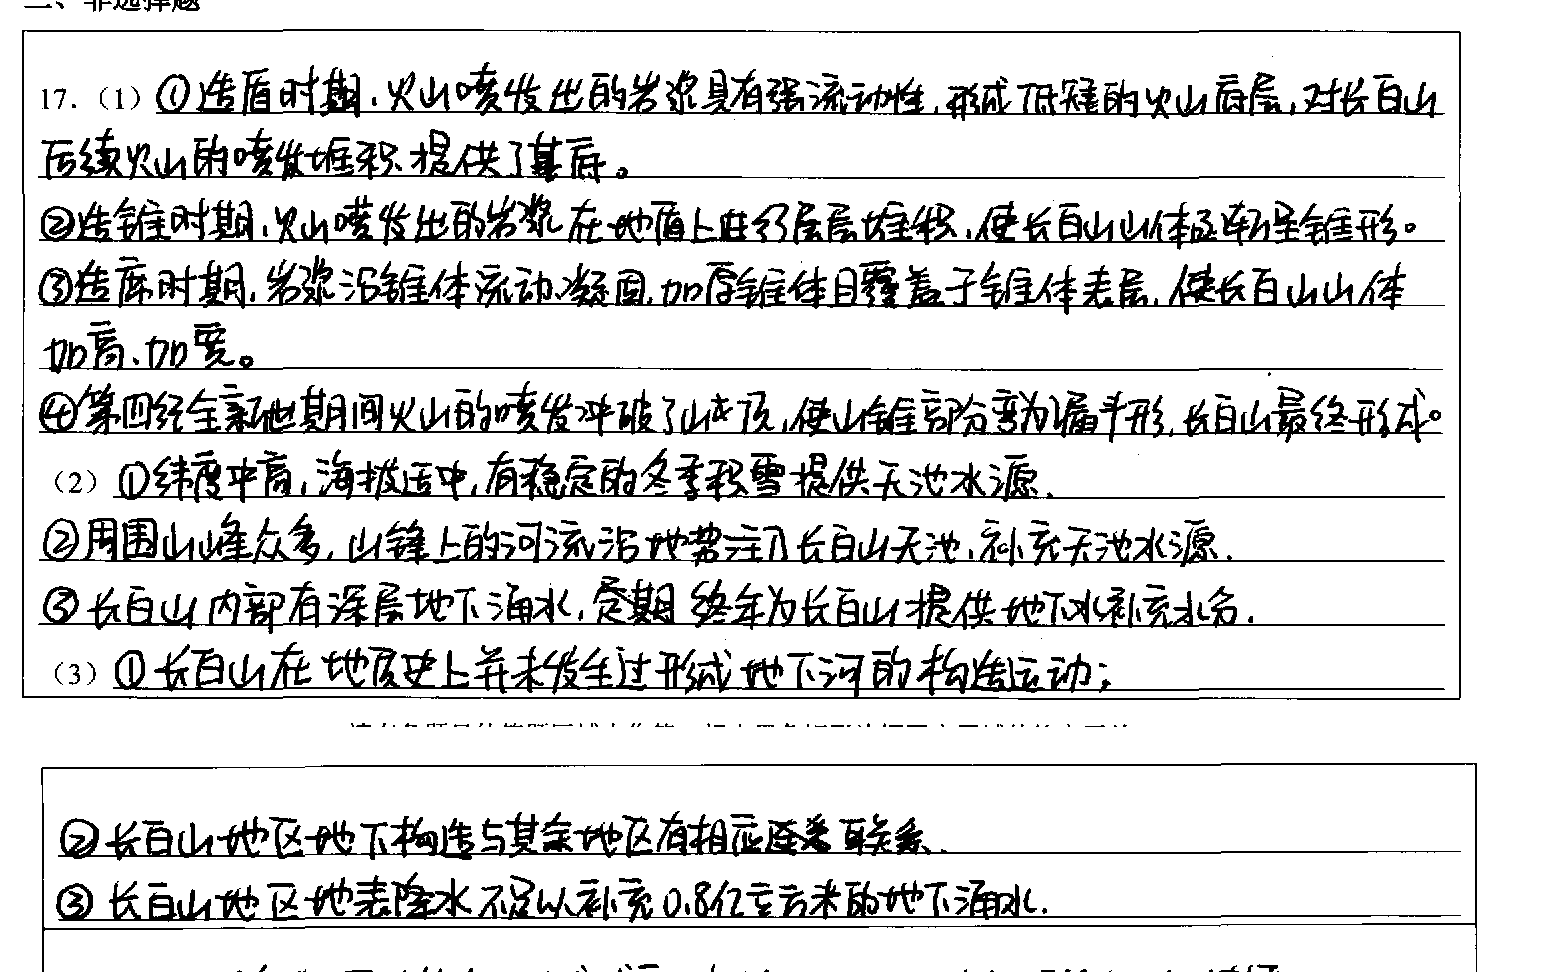 二、非选择题
17.（1）①造盾时期，火山喷发出的岩浆具有强流动性，形成低矮的火山底层，对长白山
后续火山的喷发堆积提供了基底。
②造锥时期，火山喷发出的岩浆在地盾上进行层层堆积，使长白山山体逐渐呈锥形。
③造席时期，岩浆沿锥体流动凝固，加厚锥体且覆盖于锥体表层，使长白山山体
加高、加宽。
④第四纪全新世期间火山的喷发冲破了山顶，使山锥部分变为漏斗形，长白山最终形成。
（2）①纬度中高，海拔适中，有稳定的冬季积雪提供天池水源．
②周围山峰众多，山锋上的河流沿地势注入长白山天池，补充天池水源．
③长白山内部有深层地下涌水，定期终年为长白山提供地下水补充水分．
（3）①长白山在地质史上并未发生过形成地下河的构造运动；
②长白山地区地下构造与其余地区有相应联系．
③长白山地区地表降水不足以补充0.8亿立方米的地下涌水．